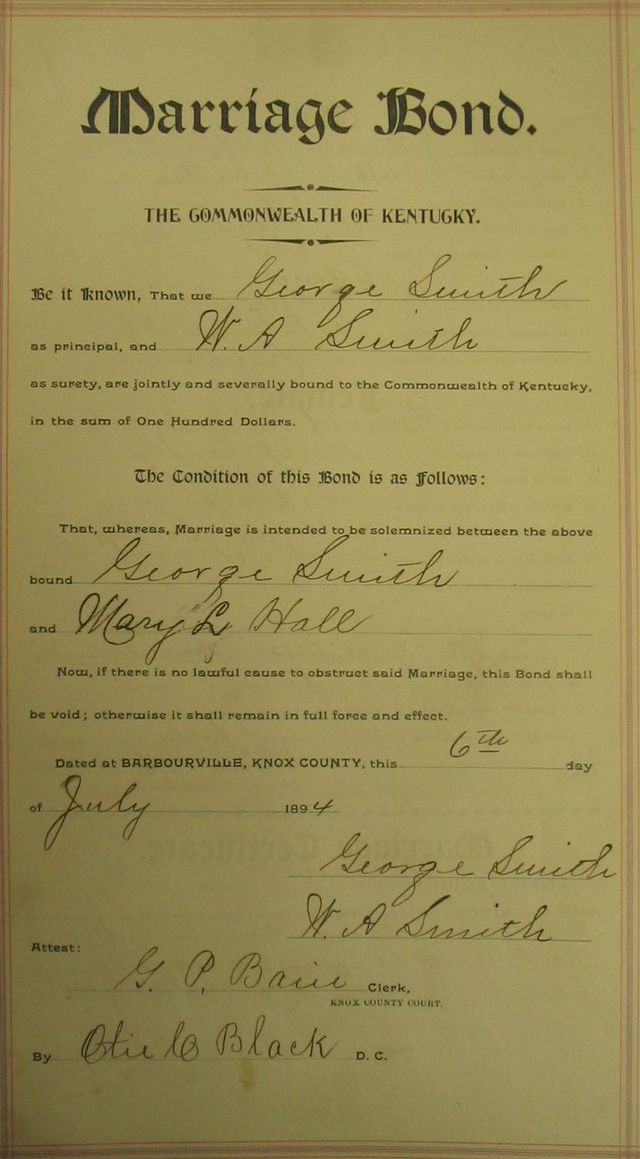 Marriage Bond.
THE COMMONWEALTH OF KENTUCKY.
Be it Known, That we George Smith
as principal, and W. A Smith
as surety, are jointly and severally bound to the Commonwealth of Kentucky,
in the sum of One Hundred Dollars.
The Condition of this Bond is as Follows:
That, whereas, Marriage is intended to be solemnized between the above
bound George Smith
and Mary L Hall
Now, if there is no lawful cause to obstruct said Marriage, this Bond shall
be void; otherwise it shall remain in full force and effect.
Dated at BARBOURVILLE, KNOX COUNTY, this 6th day
of July 1894
George Smith
W. A Smith
Attest:
G. P. Clerk,
KNOX COUNTY COURT.
By Black D. C.